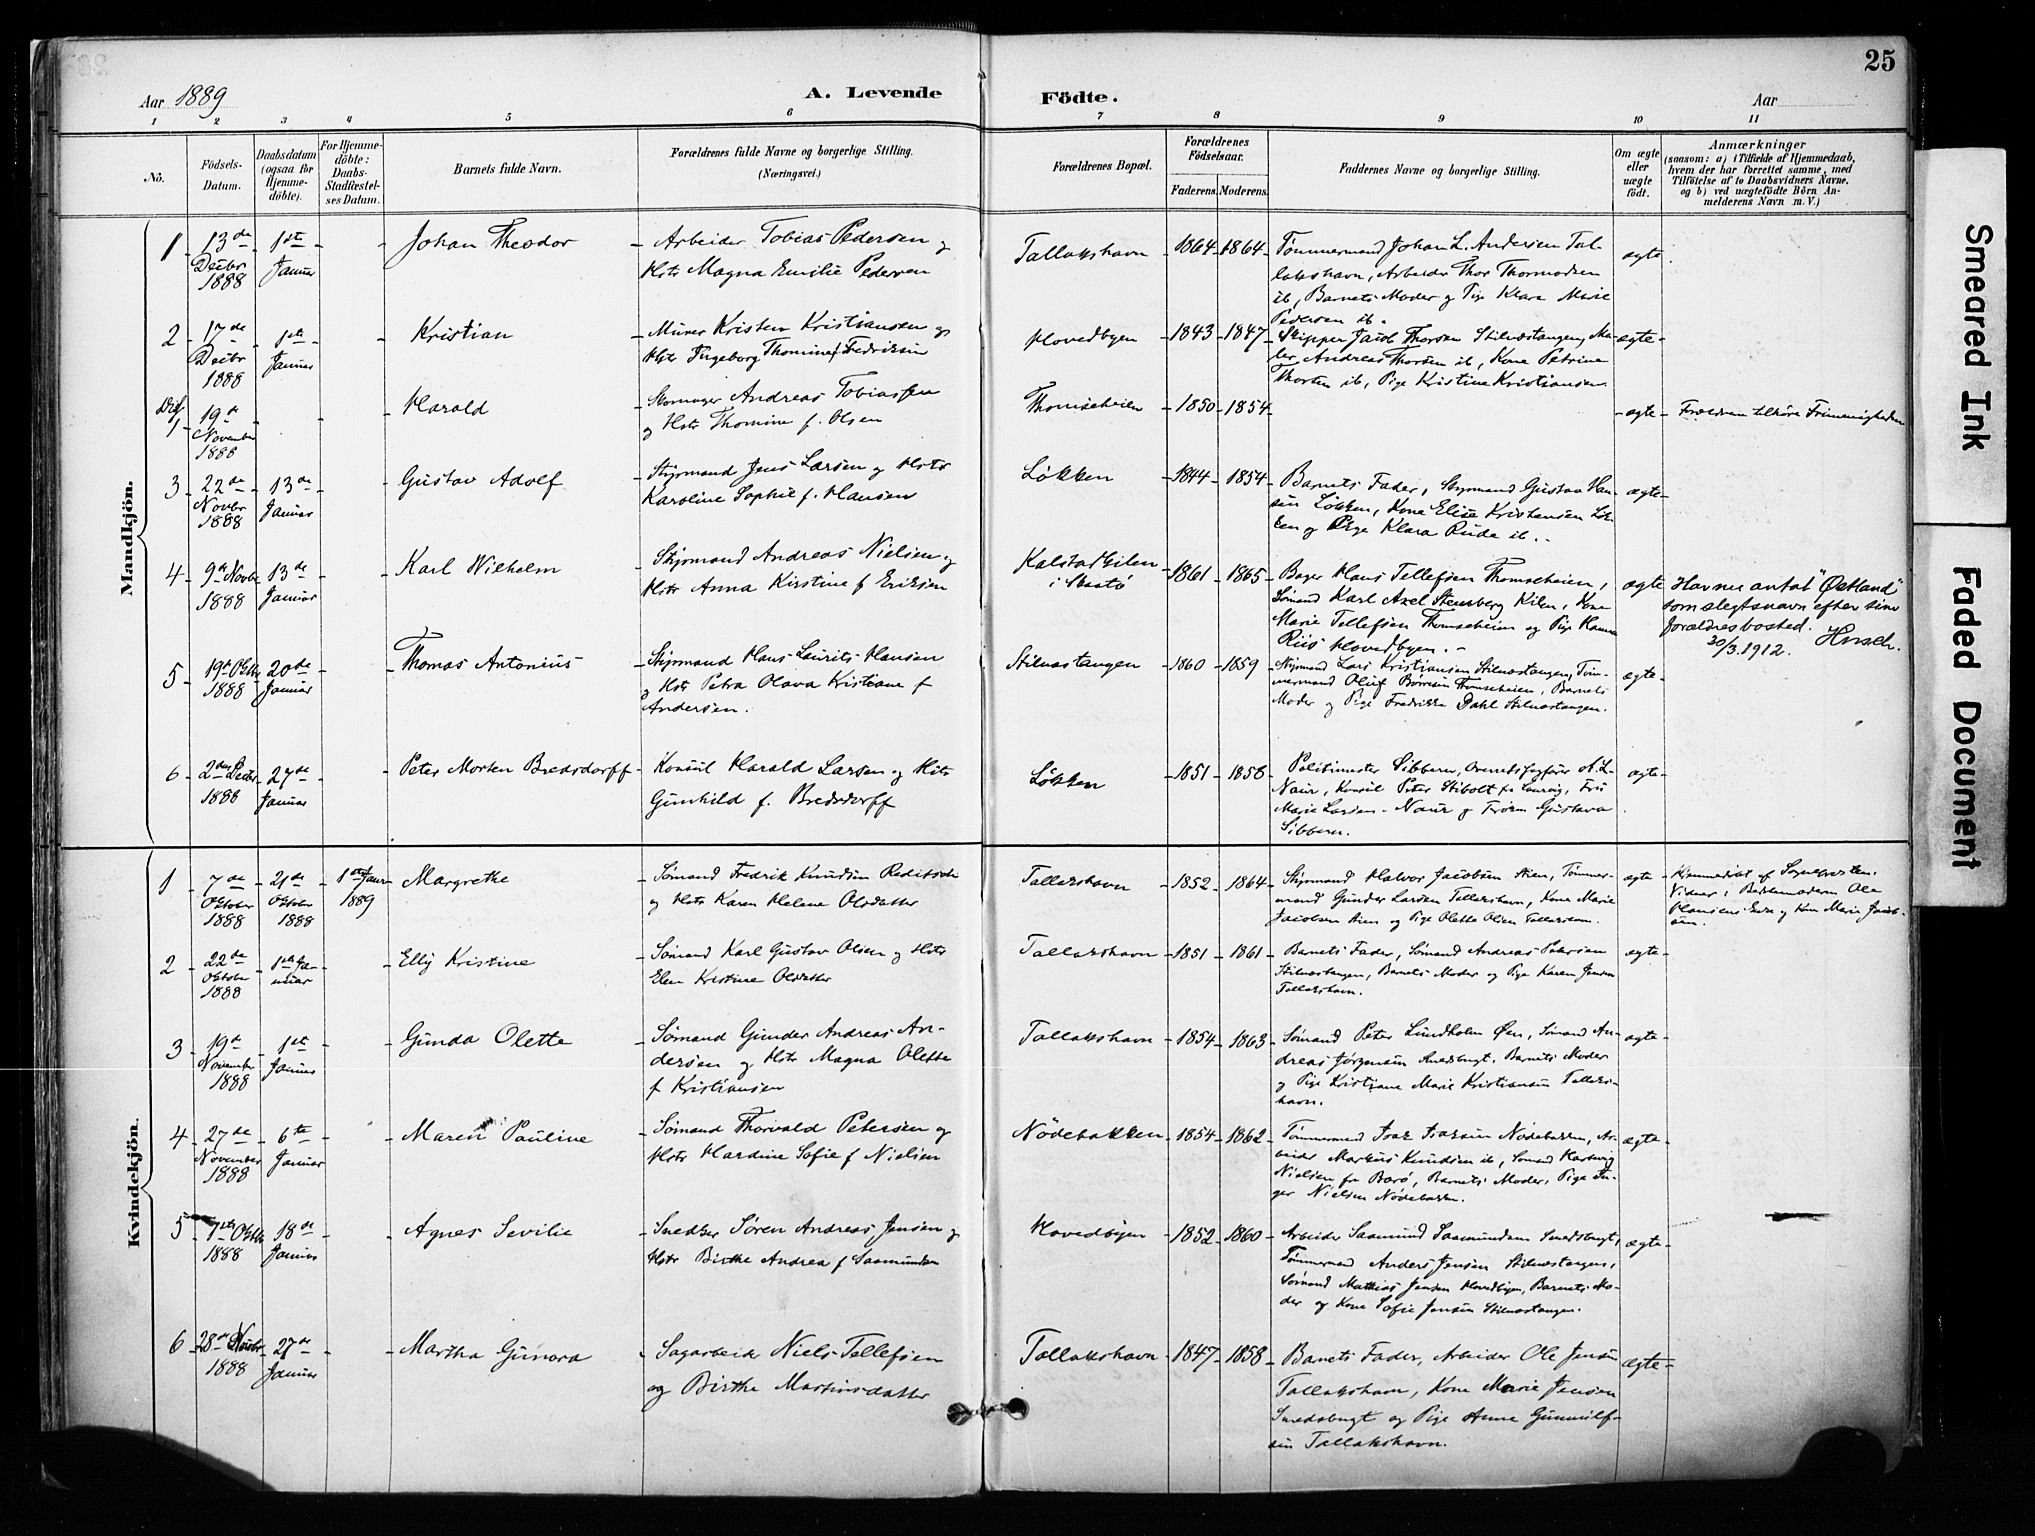 25
Aar 1889
A. Levende
Födte.
Aar
1 2 3 4 5 6 7 8 9 10 11
No.
Födsels-
Datum.
Daabsdatum
(ogsaa for
Hjemme-
döbte).
For Hjemme-
döbte:
Daabs-
Stadfæstel-
ses Datum.
Barnets fulde Navn.
Forældrenes fulde Navne og borgerlige Stilling.
(Næringsvei.)
Forældrenes Bopæl.
Forældrenes
Födselsaar.
Faderens. Moderens.
Faddernes Navne og borgerlige Stilling.
Om ægte
eller
uægte
födt.
Anmærkninger
(saasom: a) i Tilfælde af Hjemmedaab,
hvem der har forrettet samme, med
Tilföielse af to Daabsvidners Navne,
og b) ved uægtefödte Börn An-
melderens Navn m. V.)
Mandkjön.
1
13de
Decbr
1888
1ste
Januar
Johan Theodor
Arbeider Tobias Pedersen og
Hstr Magna Emilie Pedersen
Tallakshavn
1864 1864
Tømmermand Johan L. Andersen Tal-
lakshavn, Arbeider Thor Thormodsen
ib, Barnets Moder og Pige Klara Marie
Pedersen ib.
ægte
2
17de
Decbr
1888
1ste
Januar
Kristian
Murer Kristen Kristiansen og
Hstr Ingeborg Thomine f Fedriksen
Hovedbyen
1843 1847
Skipper Jacob Thorsen Stilnestangen, Ma-
ler Andreas Thorsen ib, Kone Petrine
Thorsen ib, Pige Kristine Kristiansen
ægte
Diss
1
19de
November
1888
Harald
Skomager Andreas Tobiassen
og Hstr Thomine f. Olsen
Thomseheien
1850 1854
ægte
Forældrene tilhøre Frimenigheden
3
22de
Novbr
1888
13de
Januar
Gustav Adolf
Styrmand Jens Larsen og Hstr
Karoline Sophie f. Hansen
Løkken
1844 1854
Barnets Fader, Styrmand Gustav Han-
sen Løkken, Kone Elise Kristensen Løk-
ken og Pige Klara Rude ib.
ægte
4
9de Novbr
1888
13de
Januar
Karl Wilhelm
Styrmand Andreas Nielsen og
Hstr Anna Kirstine f Eriksen
Kalstadkilen
i Skatø
1861 1865
Bager Hans Tellefsen Thomseheien,
Sømand Karl Axel Stensberg Kilen, Kone
Marie Tellefsen Thomseheien og Pige Hanna
Riis Hovedbyen.
ægte
Havner antat "Østland"
som slegtsnavn efter sine
forældres bosted.
30/3.1912.
5
19de Oktbr
1888
20de
Januar
Thomas Antonius
Styrmand Hans Laurits Hansen
og Hstr Petra Olava Kristiane f
Andersen.
Stilnestangen
1860 1859
Styrmand Lars Kristiansen Stilnestangen, Tøm-
mermand Oluf Børresen Thomseheien, Barnets
Moder og Pige Fredrikke Dahl Stilnestangen.
ægte
6
2den Decbr
1888
27de
Januar
Peter Morten Bredsdorff
Konsul Harald Larsen og Hstr
Gunhild f. Bredsdorff
Løkken
1851 1856
Politimester Sibbern, Overretssagfører A. L.
Naur, Konsul Peter Stibolt fra Laurvig, Fru
Marie Larsen-Naur og Frøken Gustava
Sibbern.
ægte
Kvindekjön.
1
7de
Oktober
1888
21de
Oktober
1888
1ste Janr
1889
Margrethe
Sømand Fredrik Knudsen
og Hstr Karen Helene Olsdatter
Tallakshavn
1852 1864
Styrmand Halvor Jacobsen Stien, Tømmer-
mand Gunder Larsen Tallakshavn, Kone Marie
Jacobsen Stien og Pige Olette Olsen Tallakshavn.
ægte
Hjemmedøbt af Sognepresten.
Vidner: Bestemoderen Ole
Hansens Enke og Kone Marie Jacob-
sen.
2
22de
Oktober
1888
1ste Ja-
nuar
Elly Kristine
Sømand Karl Gustav Olsen og Hstr
Elen Kristine Olsdatter
Tallakshavn
1851 1861
Barnets Fader, Sømand Andreas Petersen
Stilnestangen, Barnets Moder og Pige Karen Jensen
Tallakshavn.
ægte
3
19de
November
1888
1ste
Januar
Gunda Olette
Sømand Gunder Andreas An-
dersen og Hstr Magna Olette
f Kristiansen
Tallakshavn
1854 1863
Sømand Peter Lindholm Øen, Sømand An-
dreas Jørgensen Smedsbugt, Barnets Moder
og Pige Kristiane Marie Kristiansen Tallaks-
havn.
ægte
4
27de
November
1888
6te
Januar
Maren Pauline
Sømand Thorvald Petersen og
Hstr Hardine Sofie f Nielsen
Nødebakken
1854 1862
Tømmermand Isak Isaksen Nødebakken, Ar-
beider Markus Knudsen ib, Sømand Hartvig
Nielsen fra Barø, Barnets Moder, Pige In-
ger Nielsen Nødebakken.
ægte
5
7de Oktbr
1888
18de
Januar
Agnes Sevilie
Snedker Søren Andreas Jensen og
Hstr Birthe Andrea f Saamundsen
Hovedbyen
1852 1860
Arbeider Saamund Saamundsen Smedsbugt,
Tømmermand Anders Jensen Stilnestangen,
Sømand Mathias Jensen Hovedbyen, Barnets Mo-
der og Kone Sofie Jensen Stilnestangen.
ægte
6
28de
1888
27de
Januar
Martha Gunora
Sagarbeider Niels Tellefsen
og Birthe Martinsdatter
Tallakshavn
1847 1858
Barnets Fader, Arbeider Ole Jensen
Tallakshavn, Kone Marie Jensen
Smedsbugt og Pige Anne Gunnulf-
sen Tallakshavn.
ægte
Smeared Ink
Faded Document